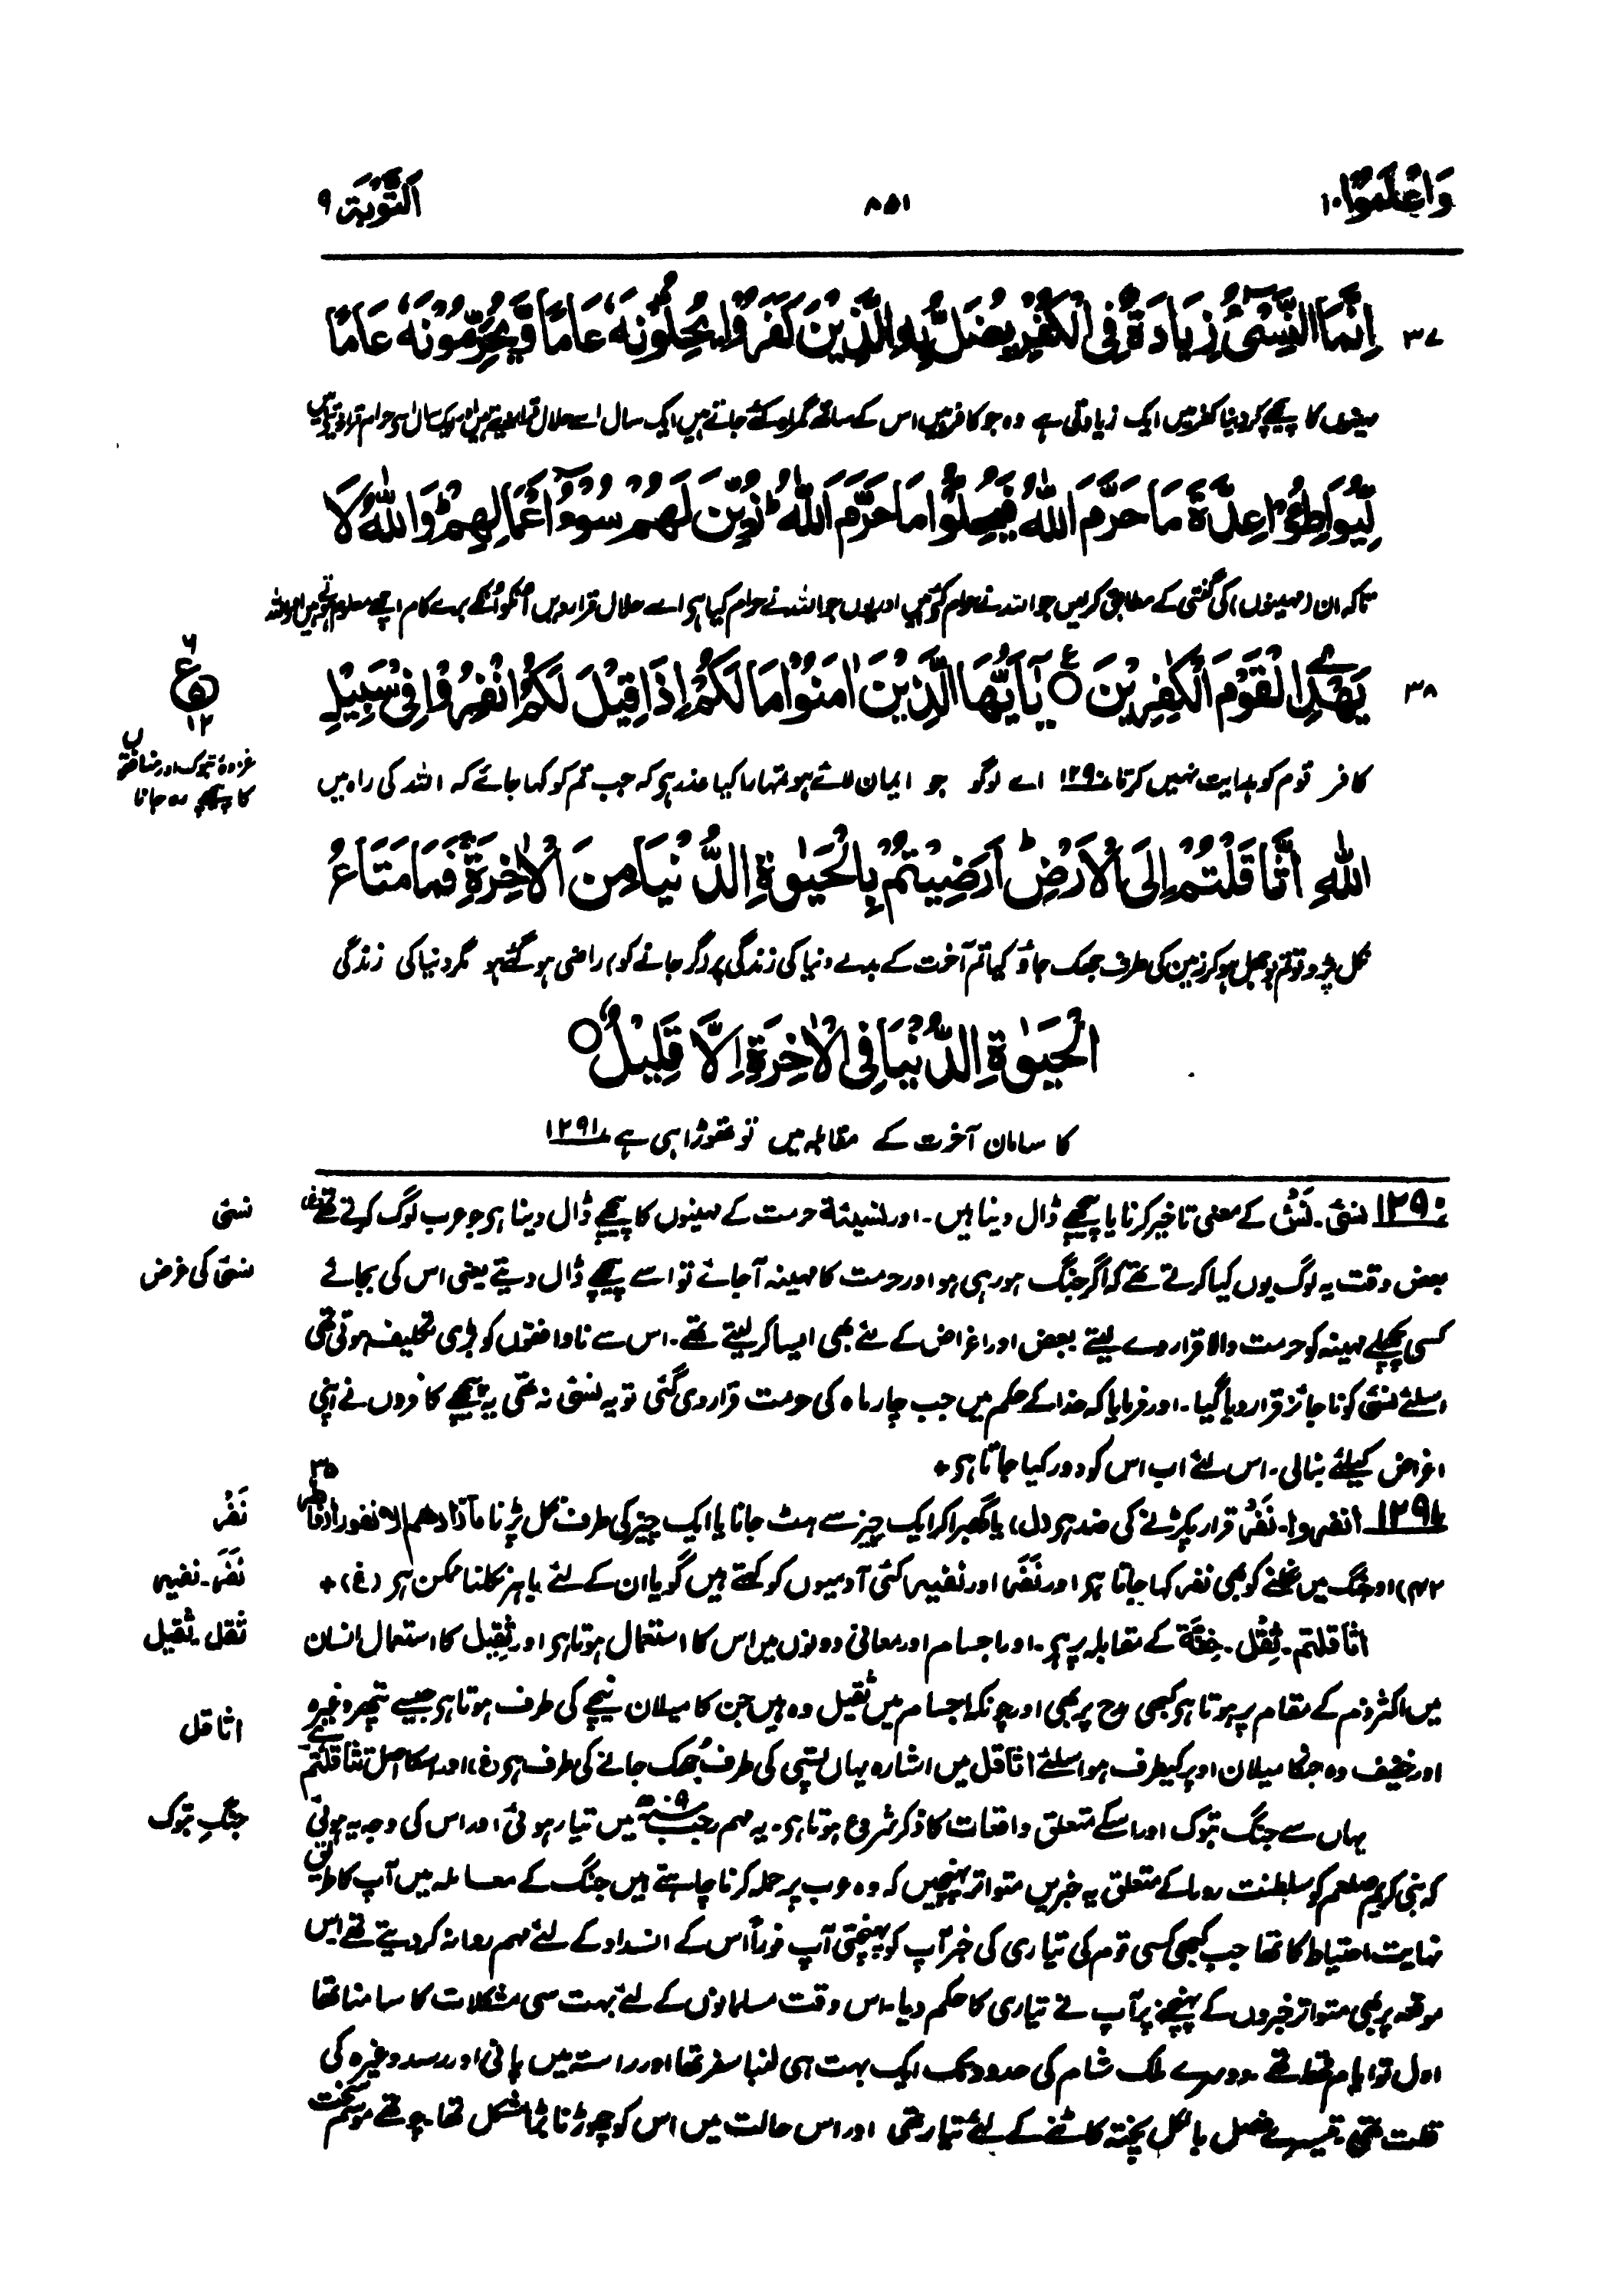 وَاعْلَمُوْا ۱۰
۸۵۱
اَلتَّوْبَۃ ۹
۳۷ اِنَّمَا النَّسِیْٓءُ زِیَادَۃٌ فِی الْکُفْرِ یُضَلُّ بِہِ الَّذِیْنَ کَفَرُوْا یُحِلُّوْنَہٗ عَامًا وَّیُحَرِّمُوْنَہٗ عَامًا
مہینوں کا پیچھے کردینا کفر میں ایک زیادتی ہے وہ جو کافر ہیں اس کے ساتھ گمراہ کئے جاتے ہیں ایک سال اسے حلال قرار دیتے ہیں اور ایک سال اسی حرام قرار دیتے ہیں
لِّیُوَاطِـُٔوْا عِدَّۃَ مَا حَرَّمَ اللّٰہُ فَیُحِلُّوْا مَا حَرَّمَ اللّٰہُ ؕ زُیِّنَ لَہُمْ سُوْٓءُ اَعْمَالِہِمْ ؕ وَاللّٰہُ لَا
تاکہ ان (مہینوں) کی گنتی کے مطابق کرلیں جو اللہ نے حرام کئے ہیں اور یوں جو اللہ نے حرام کیا ہی اسے حلال قرار دیں اُنکو اُنکے برے کام اچھے معلوم ہوتے ہیں اور اللہ
۳۸ یَہْدِی الْقَوْمَ الْکٰفِرِیْنَ ○ یٰٓاَیُّہَا الَّذِیْنَ اٰمَنُوْا مَا لَکُمْ اِذَا قِیْلَ لَکُمُ انْفِرُوْا فِیْ سَبِیْلِ
۶
ع
۵
۱۲
کافر قوم کو ہدایت نہیں کرتا ۱۲۹۰ اے لوگو جو ایمان لائے ہو تمہارا کیا عذر ہی کہ جب تم کو کہا جائے کہ اللہ کی راہ میں
غزوۂ تبوک اور منافقوں
کا پیچھے رہ جانا
اللّٰہِ اثَّاقَلْتُمْ اِلَی الْاَرْضِ ؕ اَرَضِیْتُمْ بِالْحَیٰوۃِ الدُّنْیَا مِنَ الْاٰخِرَۃِ ۚ فَمَا مَتَاعُ
نکل پڑو تو تم بوجھل ہو کر زمین کی طرف جھک جاؤ کیا تم آخرت کے بدلے دنیا کی زندگی پر (گر جانے کو) راضی ہوگئے ہو مگر دنیا کی زندگی
الْحَیٰوۃِ الدُّنْیَا فِی الْاٰخِرَۃِ اِلَّا قَلِیْلٌ ○
کا سامان آخرت کے مقابلہ میں تو تھوڑا ہی ہے ۱۲۹۱
۱۲۹۰ نسئ۔ نَسْءٌ کے معنی تاخیر کرنا یا پیچھے ڈال دینا ہیں۔ اور نسیئۃ حرمت کے مہینوں کا پیچھے ڈال دینا ہی جو عرب لوگ کرتے تھے (غ)
نسئ
بعض وقت یہ لوگ یوں کیا کرتے تھے کہ اگر جنگ ہو رہی ہو اور حرمت کا مہینہ آجائے تو اسے پیچھے ڈال دیتے یعنی اس کی بجائے
نسئ کی غرض
کسی پچھلے مہینہ کو حرمت والا قرار دے لیتے بعض اور اغراض کے لئے بھی ایسا کر لیتے تھے۔ اس سے ناواقفوں کو بڑی تکلیف ہوتی تھی
اسلئے نسئ کو ناجائز قرار دیا گیا۔ اور فرمایا کہ خدا کے حکم میں جب چار ماہ کی حرمت قرار دی گئی تو یہ نسئ نہ تھی یہ پیچھے کافروں نے اپنی
اغراض کیلئے بنالی۔ اس لئے اب اس کو دور کیا جاتا ہی +
۱۲۹۱ انفروا۔ نَفْرٌ قرار پکڑنے کی ضد ہی (ل) یا گھبرا کر ایک چیز سے ہٹ جانا یا ایک چیز کی طرف نکل پڑنا ما زادھم الا نفورا (فاطر ۳۵
نَفْر
۴۲) اور جنگ میں نکلنے کو بھی نفر کہا جاتا ہی اور نَفَر اور نفیر کئی آدمیوں کو کہتے ہیں گویا ان کے لئے باہر نکلنا ممکن ہی (غ) +
نَفَر۔ نفیر
اثاقلتم۔ ثِقْل۔ خِفَّۃ کے مقابلہ پر ہی۔ اور اجسام اور معانی دونوں میں اس کا استعمال ہوتا ہی اور ثقیل کا استعمال انسان
ثقل۔ ثقیل
میں اکثر ذم کے مقام پر ہوتا ہی کبھی مدح پر بھی اور چونکہ اجسام میں ثقیل وہ ہیں جن کا میلان نیچے کی طرف ہوتا ہی جیسے پتھر وغیرہ
اثاقل
اور خفیف وہ جنکا میلان اوپر کیطرف ہو اسلئے اثاقل میں اشارہ یہاں پستی کی طرف جُھک جانے کی طرف ہی (غ) اور اسکا اصل تثاقلتم ہے
یہاں سے جنگ تبوک اور اسکے متعلق واقعات کا ذکر شروع ہوتا ہی۔ یہ مہم رجب سنہ ۹ھ میں تیار ہوئی اور اس کی وجہ یہ ہوئی
جنگِ تبوک
کہ نبی کریم صلعم کو سلطنت روما کے متعلق یہ خبریں متواتر پہنچیں کہ وہ عرب پر حملہ کرنا چاہتے ہیں جنگ کے معاملہ میں آپ کا طریق
نہایت احتیاط کا تھا جب کبھی کسی قوم کی تیاری کی خبر آپ کو پہنچتی آپ فوراً اُس کے انسداد کے لئے مہم روانہ کر دیتے تھے اس
موقعہ پر بھی متواتر خبروں کے پہنچنے پر آپ نے تیاری کا حکم دیا۔ اس وقت مسلمانوں کے لئے بہت سی مشکلات کا سامنا تھا
اول تو ایام قحط تھے۔ دوسرے ملک شام کی حدود تک ایک بہت ہی لنبا سفر تھا اور راستہ میں پانی اور رسد وغیرہ کی
قلت تھی۔ تیسرے فصل بالکل پختہ کاٹنے کے لئے تیار تھی اور اس حالت میں اس کو چھوڑنا بڑا مشکل تھا۔ چوتھے موسم سخت